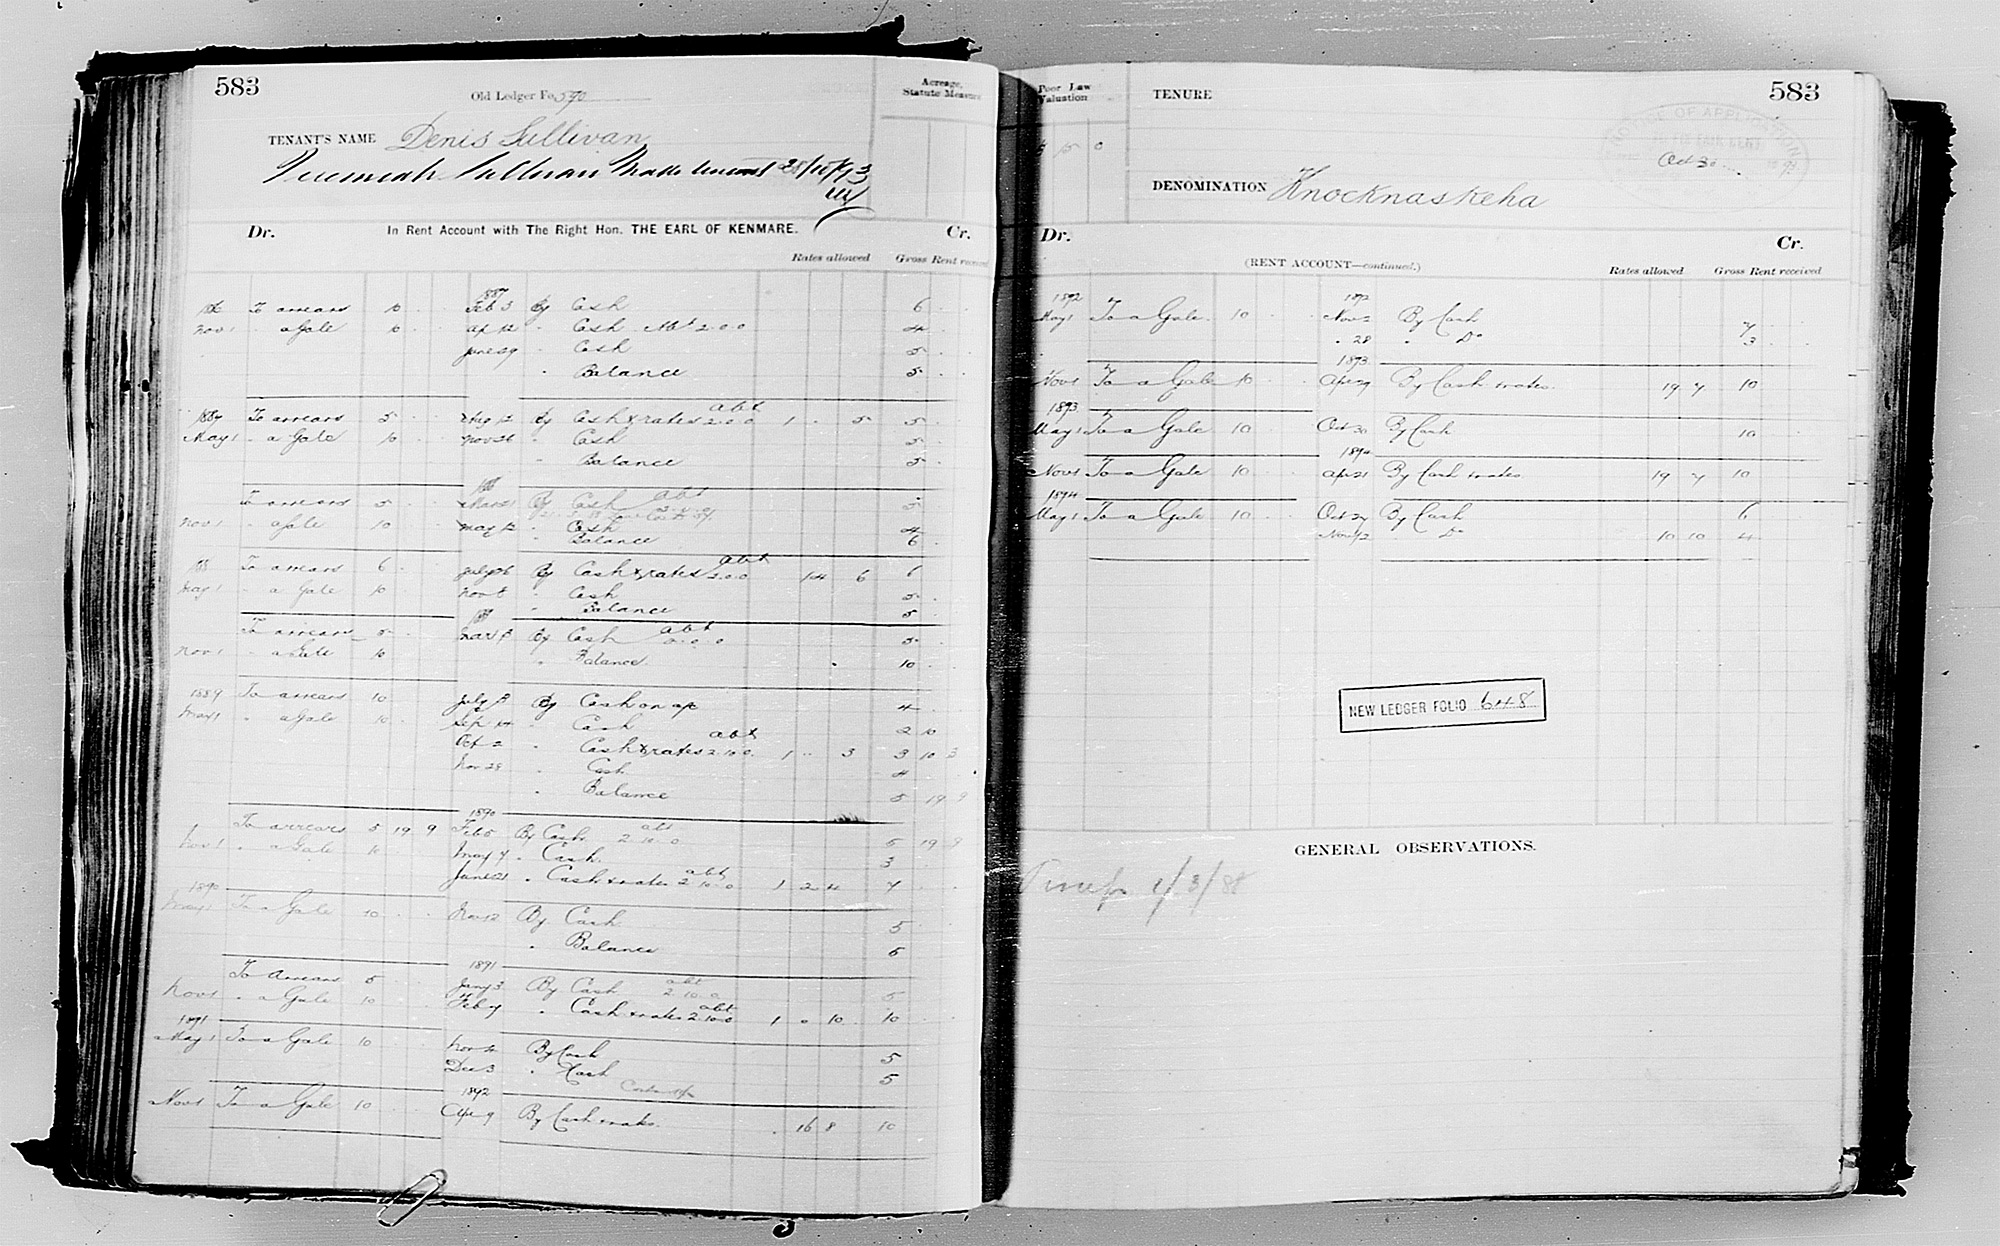 583
Old Ledger Fo. 590
Acreage, Statute Measure
TENANT'S NAME Denis Sullivan
Jeremiah Sullivan Made tenant 28/10/93
Dr. In Rent Account with The Right Hon. THE EARL OF KENMARE. Cr.
Rates allowed Gross Rent received
1887
To arrears 10 Feb 3 By Cash 6
Nov 1 " a Gale 10 Ap 12 " Cash Abt 2.0.0 4
June 29 " Cash 5
" Balance 5
1887 To arrears 5 Aug 12 By Cash & rates abt 2.0.0 1 . 5 5
May 1 " a Gale 10 Nov 26 " Cash 5
" Balance 5
To arrears 5 By Cash abt 5
Nov 1 " a Gale 10 May 12 " Cash 4
" Balance 6
To arrears 6 July 26 By Cash & rates abt 2.0.0 14 6 6
May 1 " a Gale 10 Nov " Cash 5
" Balance 5
To arrears 5 Mar By Cash abt 5
Nov 1 " a Gale 10 " Balance 10
1889 To arrears 10 July By Cash on a/c 4
May 1 " a Gale 10 Sep 14 " Cash 2 10
Oct 2 " Cash & rates abt 2.10.0 1 . 3 3 10 3
Nov 29 " Cash 4
" Balance 5 19 9
1890
To arrears 5 19 9 Feb 5 By Cash abt 2.10.0 5 19 9
Nov 1 " a Gale 10 May 7 " Cash 3
June 21 " Cash & rates abt 2.10.0 1 2 4 7
1890
May 1 To a Gale 10 Nov 12 By Cash 5
" Balance 5
1891
To Arrears 5 Jany 3 By Cash abt 2.10.0 5
Nov 1 " a Gale 10 Feb 7 " Cash & rates abt 2.10.0 1 0 10 10
1891
May 1 To a Gale 10 Nov 4 By Cash 5
Dec 3 " Cash 5
1892
Nov 1 To a Gale 10 Apl 9 By Cash & rates 16 8 10
583
Poor Law Valuation
TENURE
NOTICE OF APPLICATION
TO FIX FAIR RENT
Oct 30
DENOMINATION Knocknaskeha
Dr. Cr.
(RENT ACCOUNT—continued.)
Rates allowed Gross Rent received
1892 1892
May 1 To a Gale 10 Nov 2 By Cash 7
" 28 " Do 3
1893
Nov 1 To a Gale 10 Apl 29 By Cash & rates 19 7 10
1893
May 1 To a Gale 10 Oct 30 By Cash 10
1894
Nov 1 To a Gale 10 Apl 21 By Cash & rates 19 7 10
1894
May 1 To a Gale 10 Oct 27 By Cash 6
Nov 12 Do 10 10 4
NEW LEDGER FOLIO 648
GENERAL OBSERVATIONS.
1/3/88